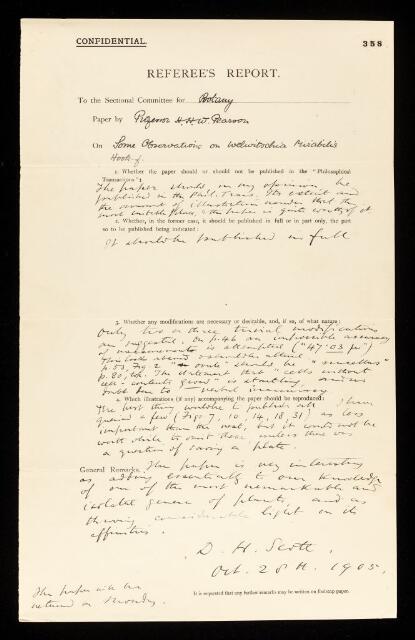 CONFIDENTIAL.
358
REFEREE'S REPORT.
To the Sectional Committee for Botany
Paper by Professor H. H. W. Pearson
On Some Observations on Welwitschia Mirabilis
Hook. f.
1. Whether the paper should or should not be published in the "Philosophical
Transactions":
The paper should, in my opinion, be
published in the Phil. Trans. Its extent and
the amount of illustration render that the
most suitable place, & the paper is quite worthy of it.
2. Whether, in the former case, it should be published in full or in part only, the part
so to be published being indicated:
It should be published in full
3. Whether any modifications are necessary or desirable, and, if so, of what nature:
Only two or three trivial modifications
are suggested. On p. 46 an impossible accuracy
of measurement is attempted ("47·03 µ")
p. 53, Fig. 2 should be "nucellus"
p. 80. The statement that "cells without
cell-contents" is startling, and no
doubt due to verbal
4. Which illustrations (if any) accompanying the paper should be reproduced:
The best thing would be to publish all. I have
queried a few (Figs 7, 10, 14, 18, 31) as less
important than the rest, but it would not be
worth while to omit these unless there was
a question of saving a plate.
General Remarks. The paper is very interesting
as adding essentially to our knowledge
of one of the most remarkable and
isolated genera of plants, and as
throwing considerable light on its
affinities.
D. H. Scott.
Oct. 28th. 1905.
The paper will be
returned on Monday.
It is requested that any further remarks may be written on foolscap paper.